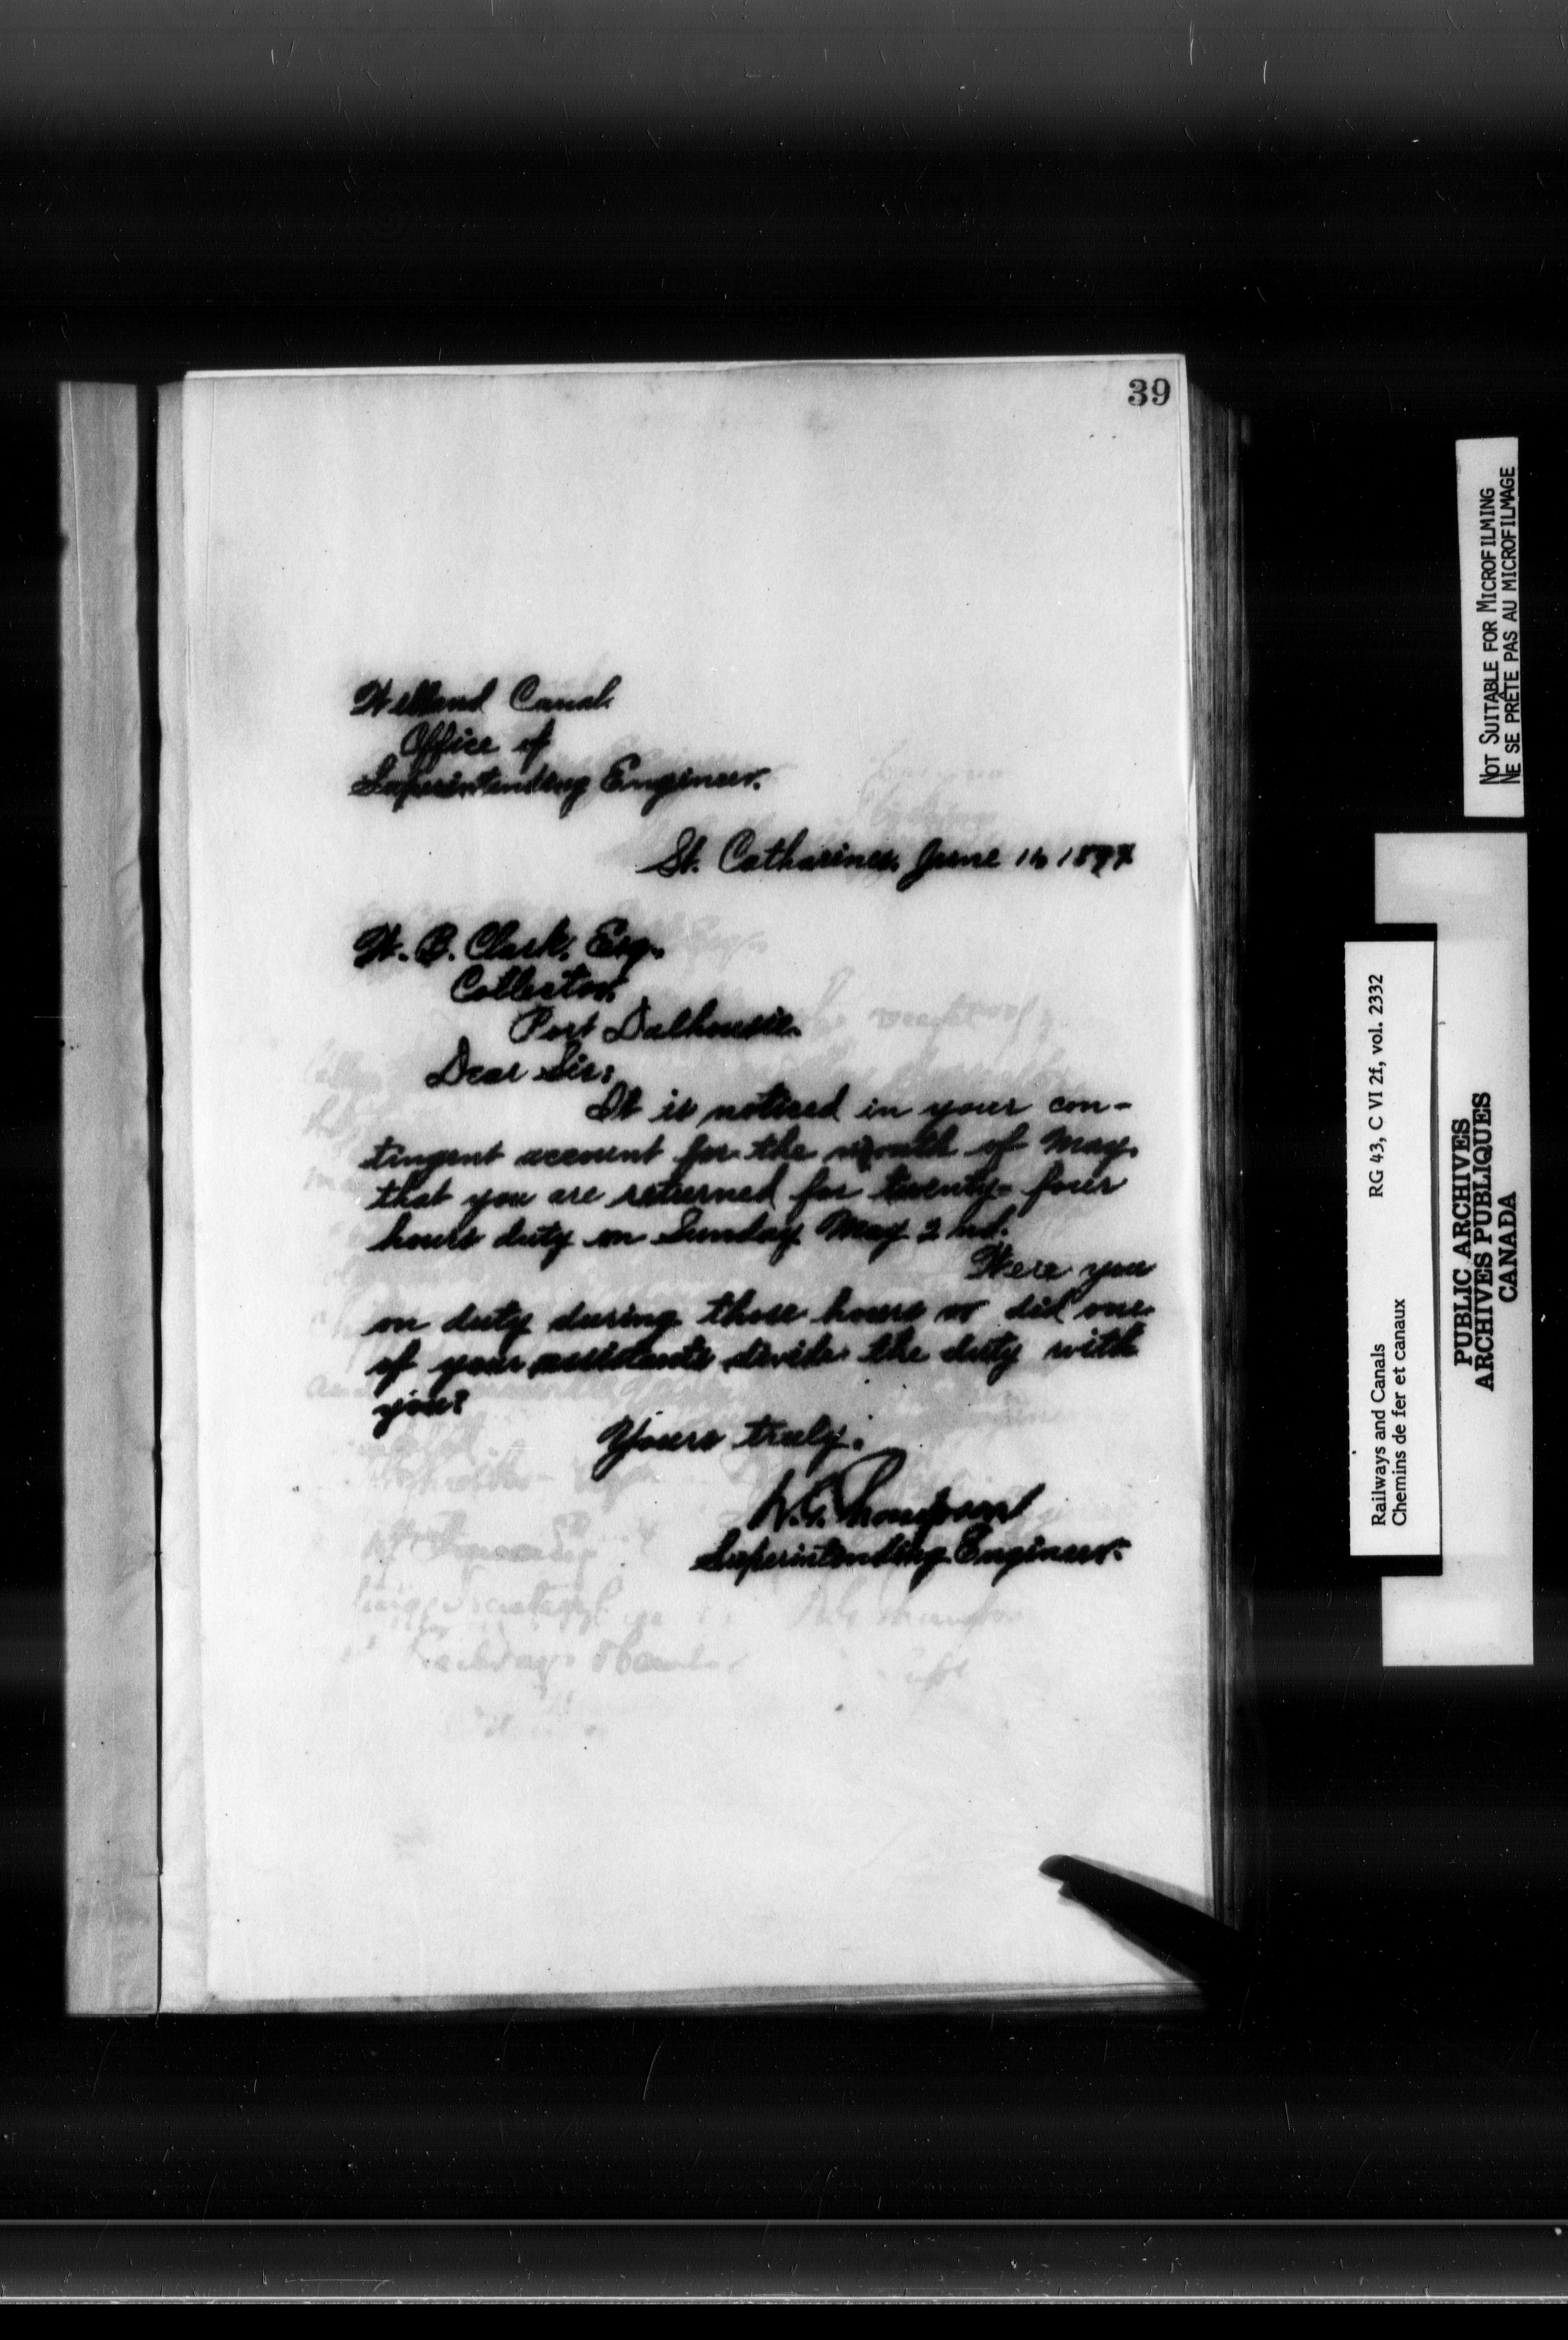 39
Welland Canal
Office of
Superintending Engineer.
St. Catharines, June 1897
W. B. Clark, Esq.
Collector,
Port Dalhousie.
Dear Sir:
It is noticed in your con-
tingent account for the month of May,
that you are returned for twenty-four
hours duty on Sunday May 2nd.
Were you
on duty during those hours or did one
of your assistants divide the duty with
you?
Yours truly,
W. G. Thompson
Superintending Engineer.
NOT SUITABLE FOR MICROFILMING
NE SE PRÊTE PAS AU MICROFILMAGE
Railways and Canals RG 43, C VI 2f, vol. 2332
Chemins de fer et canaux
PUBLIC ARCHIVES
ARCHIVES PUBLIQUES
CANADA